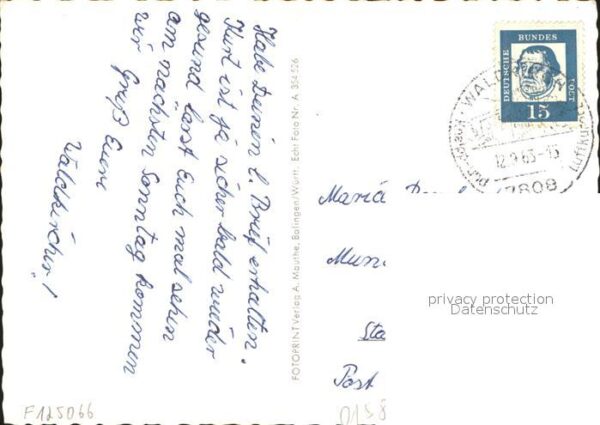 Habe Deinen l. Brief erhalten.
Kurt ist ja sicher bald wieder
gesund lässt Euch mal sehen
am nächsten Sonntag kommen
wir Gruß Eure
Waldbürcher!
FOTOPRINT Verlag A. Mauthe, Balingen/Württ. Echt Foto Nr. A 354 606
DEUTSCHE BUNDES POST
15
WALD
Luftku
12.9.63-15
7808
Maria
Mun
Sta
Post
privacy protection
Datenschutz
F125066